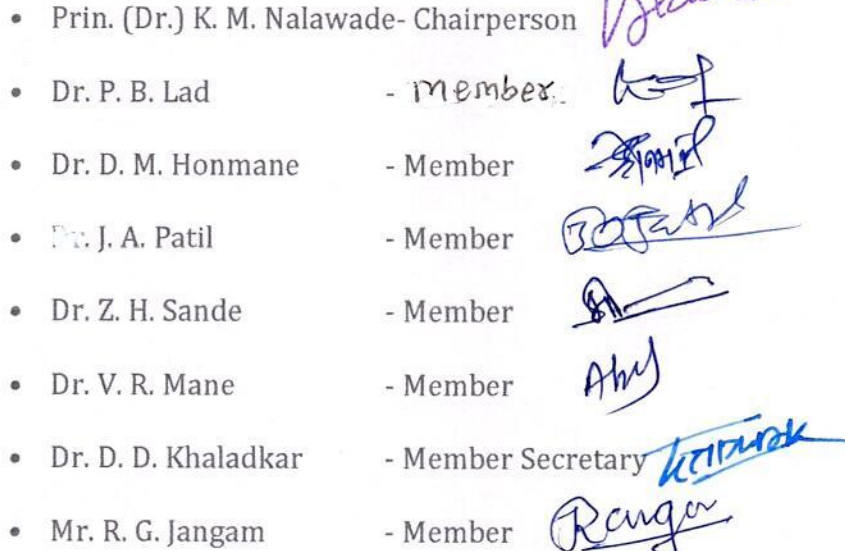 • Prin. (Dr.) K. M. Nalawade- Chairperson
• Dr. P. B. Lad - Member
• Dr. D. M. Honmane - Member
• Dr. J. A. Patil - Member
• Dr. Z. H. Sande - Member
• Dr. V. R. Mane - Member
• Dr. D. D. Khaladkar - Member Secretary
• Mr. R. G. Jangam - Member